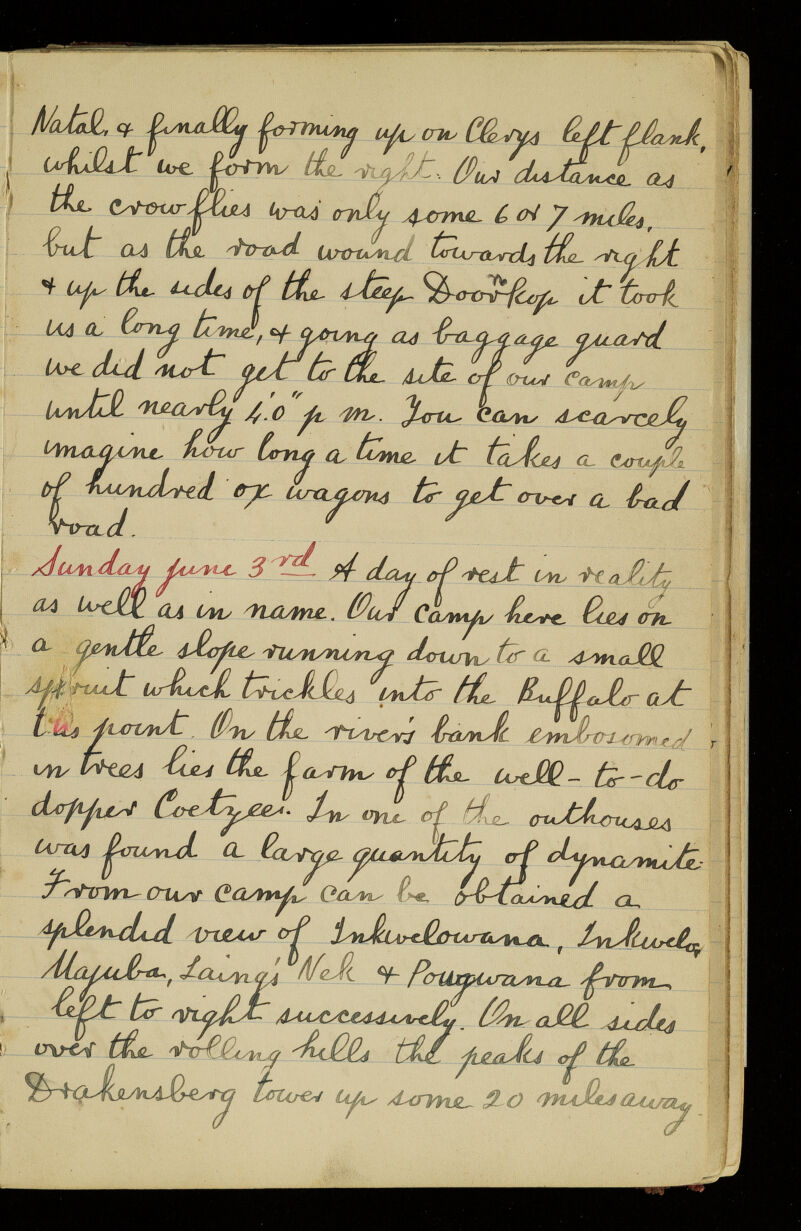 Natal, & finally forming up on Clerys left flank,
whilst we form the right. Our distance as
the crow flies was only some 6 or 7 miles,
but as the road wound towards the right
& up the sides of the steep Doornkop it took
us a long time, & going as baggage guard
we did not get to the site of our camp
until nearly 4.'0" p m. You can scarcely
imagine how long a time it takes a couple
of hundred ox wagons to get over a bad
road.
Sunday June 3rd A day of rest in reality
as well as in name. Our camp here lies on
a gentle slope running down to a small
spruit which trickles into the Buffalo at
this point. On the river's bank embosomed
in trees lies the farm of the well-to-do
dopper Coetzee. In one of the outhouses
was found a large quantity of dynamite.
From our camp can be obtained a
splendid view of Inkwelowana, Inkwelo,
Majuba, Laing's Nek & Pougwana from
left to right successively. On all sides
over the rolling hills the peaks of the
Drakensberg tower up some 20 miles away.